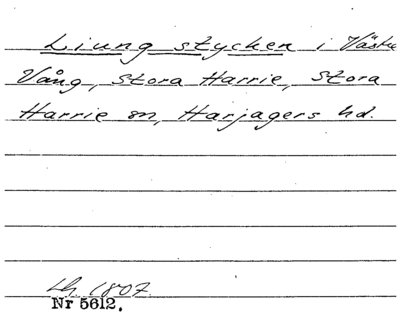 Liung stycken i Västra
Vång, Stora Harrie, Stora
Harrie sn, Harjagers hd.
1807.
Nr 5612.